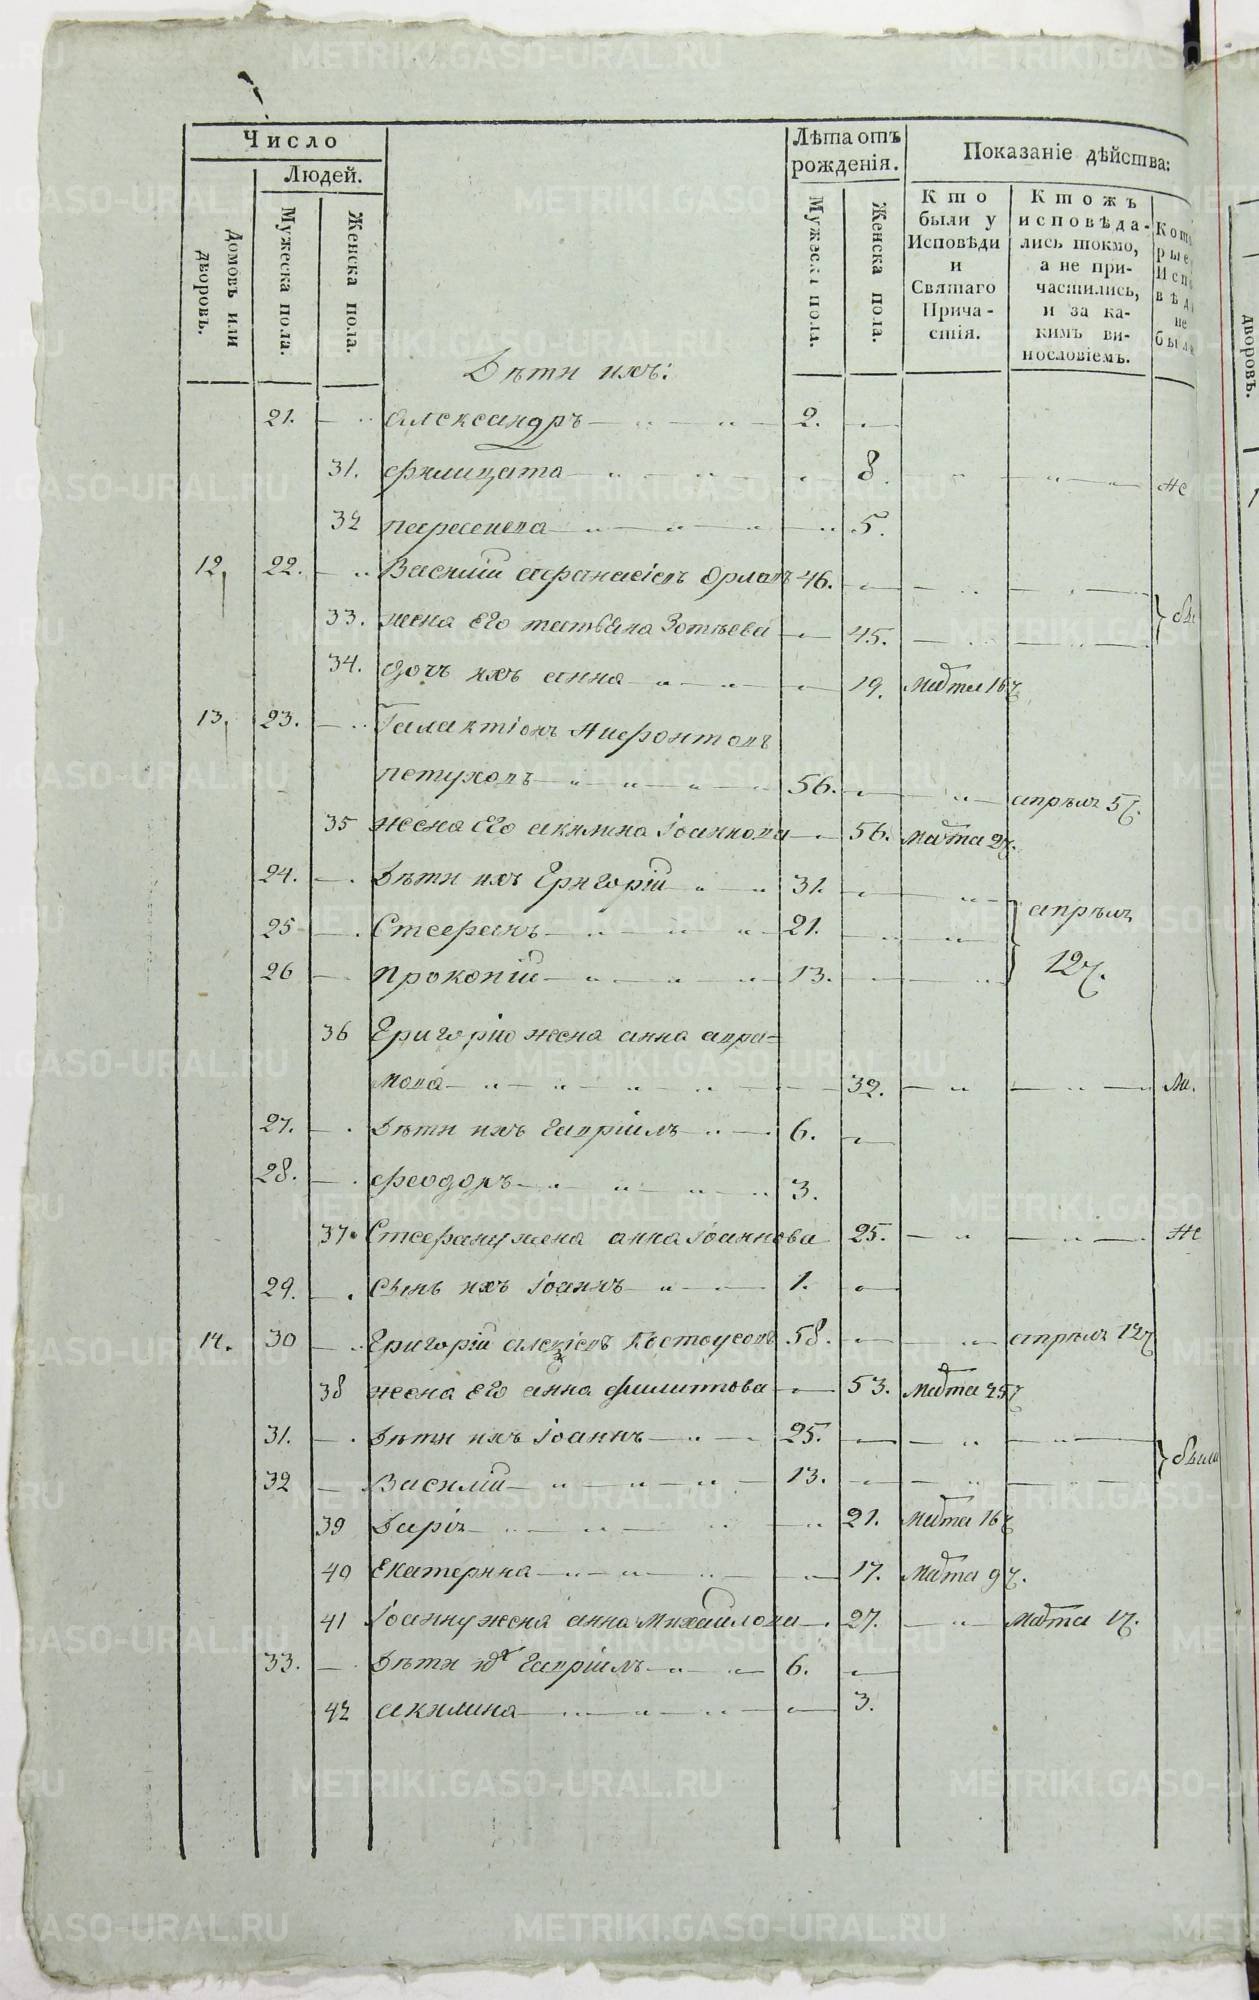 Число
Людей.
Домовъ или дворовъ.
Мужеска пола.
Женска пола.
Лѣта отъ рожденія.
Мужеска пола.
Женска пола.
Показаніе дѣйства:
Кто были у Исповѣди и Святаго Причастія.
Ктожъ исповѣдались токмо, а не причастились, и за какимъ винословіемъ.
дворовъ.
Дѣти ихъ:
21. Александръ 2.
31. Филицата 8. не
32 Парасковa 5.
12. 22. Василій Афанасіевъ Орловъ 46.
33. жена Его Татьяна Зотѣева 45.
34. дочь ихъ Анна 19. Марта 16ч
13. 23. Галактіонъ Нифонтовъ
Петуховъ 56. апрѣля 5ч.
35 жена Его Акилина Іоаннова 56. Марта 2ч.
24. Дѣти ихъ Григорій 31.
25 Стефанъ 21. апрѣля
26 Прокопій 13. 12ч.
36 Григорію жена Анна Авра=
мова 32. ли.
27. Дѣти ихъ Гавріилъ 6.
28. Феодоръ 3.
37. Стефану жена Анна Іоаннова 25. не
29. сынъ ихъ Іоаннъ 1.
14. 30 Григорій Алексіевъ Костоусовъ 58. апрѣля 12ч
38 жена Его Анна Филиппова 53. Марта 25ч
31. Дѣти ихъ Іоаннъ 25.
32 Василій 13. были
39 Дарія 21. Марта 16ч
40 Екатерина 17. Марта 9ч.
41 Іоанну жена Анна Михайлова 27. Марта 1ч.
33. Дѣти их Гавріилъ 6.
42 Акилина 3.
METRIKI.GASO-URAL.RU